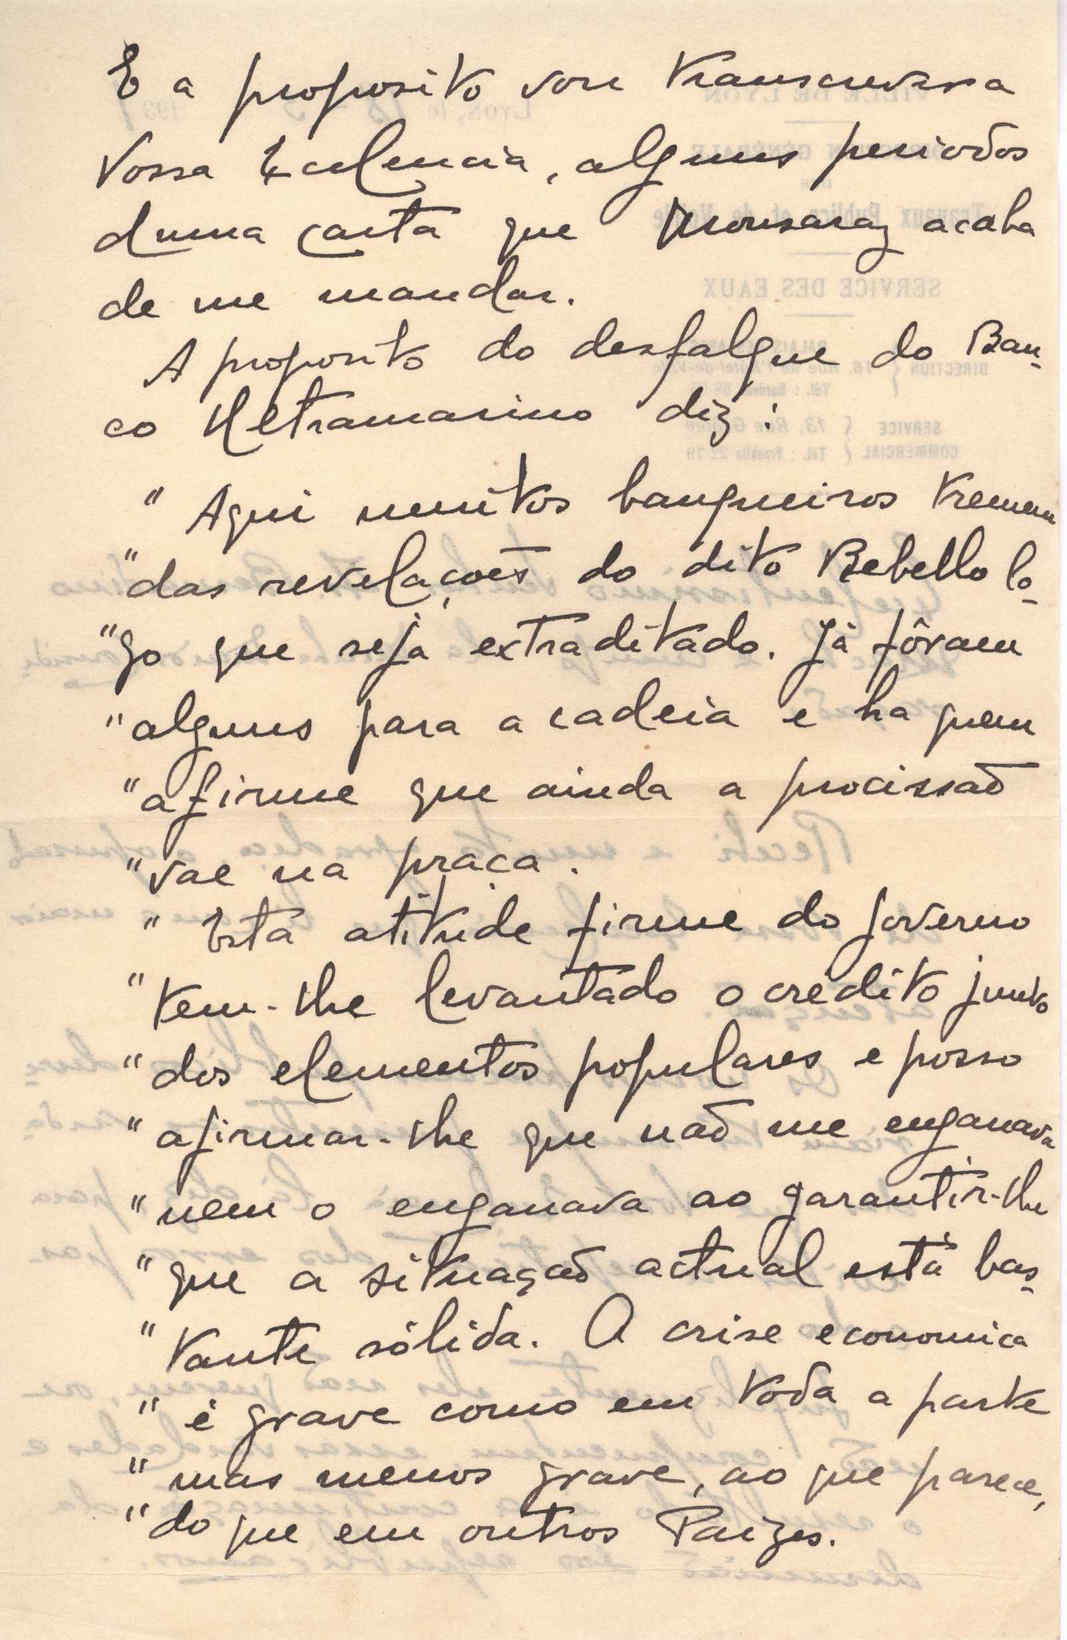 E a proposito vou transcrever a
Vossa Excelencia, alguns periodos
duma carta que Monsaraz acaba
de me mandar.
A proposito do desfalque do Ban-
co Ultramarino diz:
" Aqui muitos banqueiros tremem
"das revelações do dito Rebello lo-
"go que seja extraditado. Já fôram
"alguns para a cadeia e ha quem
"afirme que ainda a procissão
"vae na praca.
" Esta atitude firme do governo
"tem-lhe levantado o credito junto
"dos elementos populares e posso
"afirmar-lhe que não me enganava
"nem o enganava ao garantir-lhe
"que a situação actual está bas-
"tante sólida. A crise economica
"é grave como em toda a parte
"mas menos grave, ao que parece,
"do que em outros Paizes.